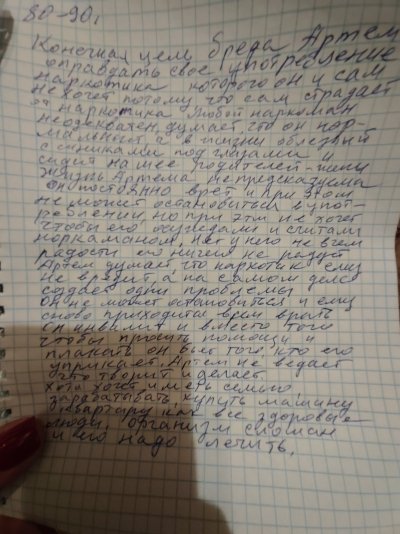 80-90.
Конечная цель бреда Артем
оправдать свое употребление
наркотика которого он и сам
не хочет потому что сам страдает
от наркотика. Любой наркоман
неадекватен, думает, что он нор-
мальный, а в жизни облезлый
с синяками под глазами и
сидит на шее родителей-жены
Жизнь Артема непредсказуема
он постоянно врет и при этом
не может остановиться в упот-
реблении, но при этом не хочет
чтобы его осуждали и считали
наркоманом. Нет у него не в чем
радости его ничем не радует
Артем думает, что наркотик ему
не вредит, а на самом деле
создает одни проблемы
он не может остановиться и ему
снова приходится всем врать
и вместо того
чтобы просить помощи и
плакать он бьет того кто его
уприкает. Артем не ведает
что творит и делает
хотя хочет иметь семью
зарабатывать купить машину
квартиру как все здоровые
люди. организм сломан
и его надо лечить.